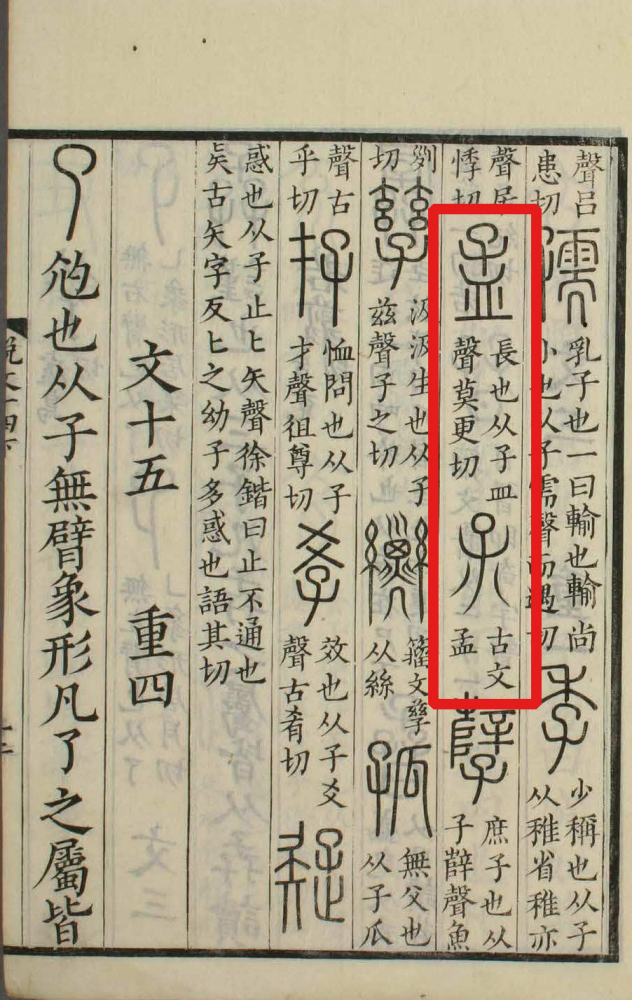 聲呂
患切
孺
乳子也一曰輸也輸尚
小也从子需聲而遇切
季
少稱也从子
从稚省稚亦
聲居
悸切
孟
長也从子皿
聲莫更切
古文
孟
孼
庶子也从
子辥聲魚
切
孳
汲汲生也从子
茲聲子之切
籒文孳
从絲
孤
無父也
从子瓜
聲古
乎切
存
恤問也从子
才聲徂尊切
𡥈
效也从子爻
聲古肴切
疑
惑也从子止匕矢聲徐鍇曰止不通也
𠤕古矢字反匕之幼子多惑也語其切
文十五 重四
了 尦也从子無臂象形凡了之屬皆
說文十四下